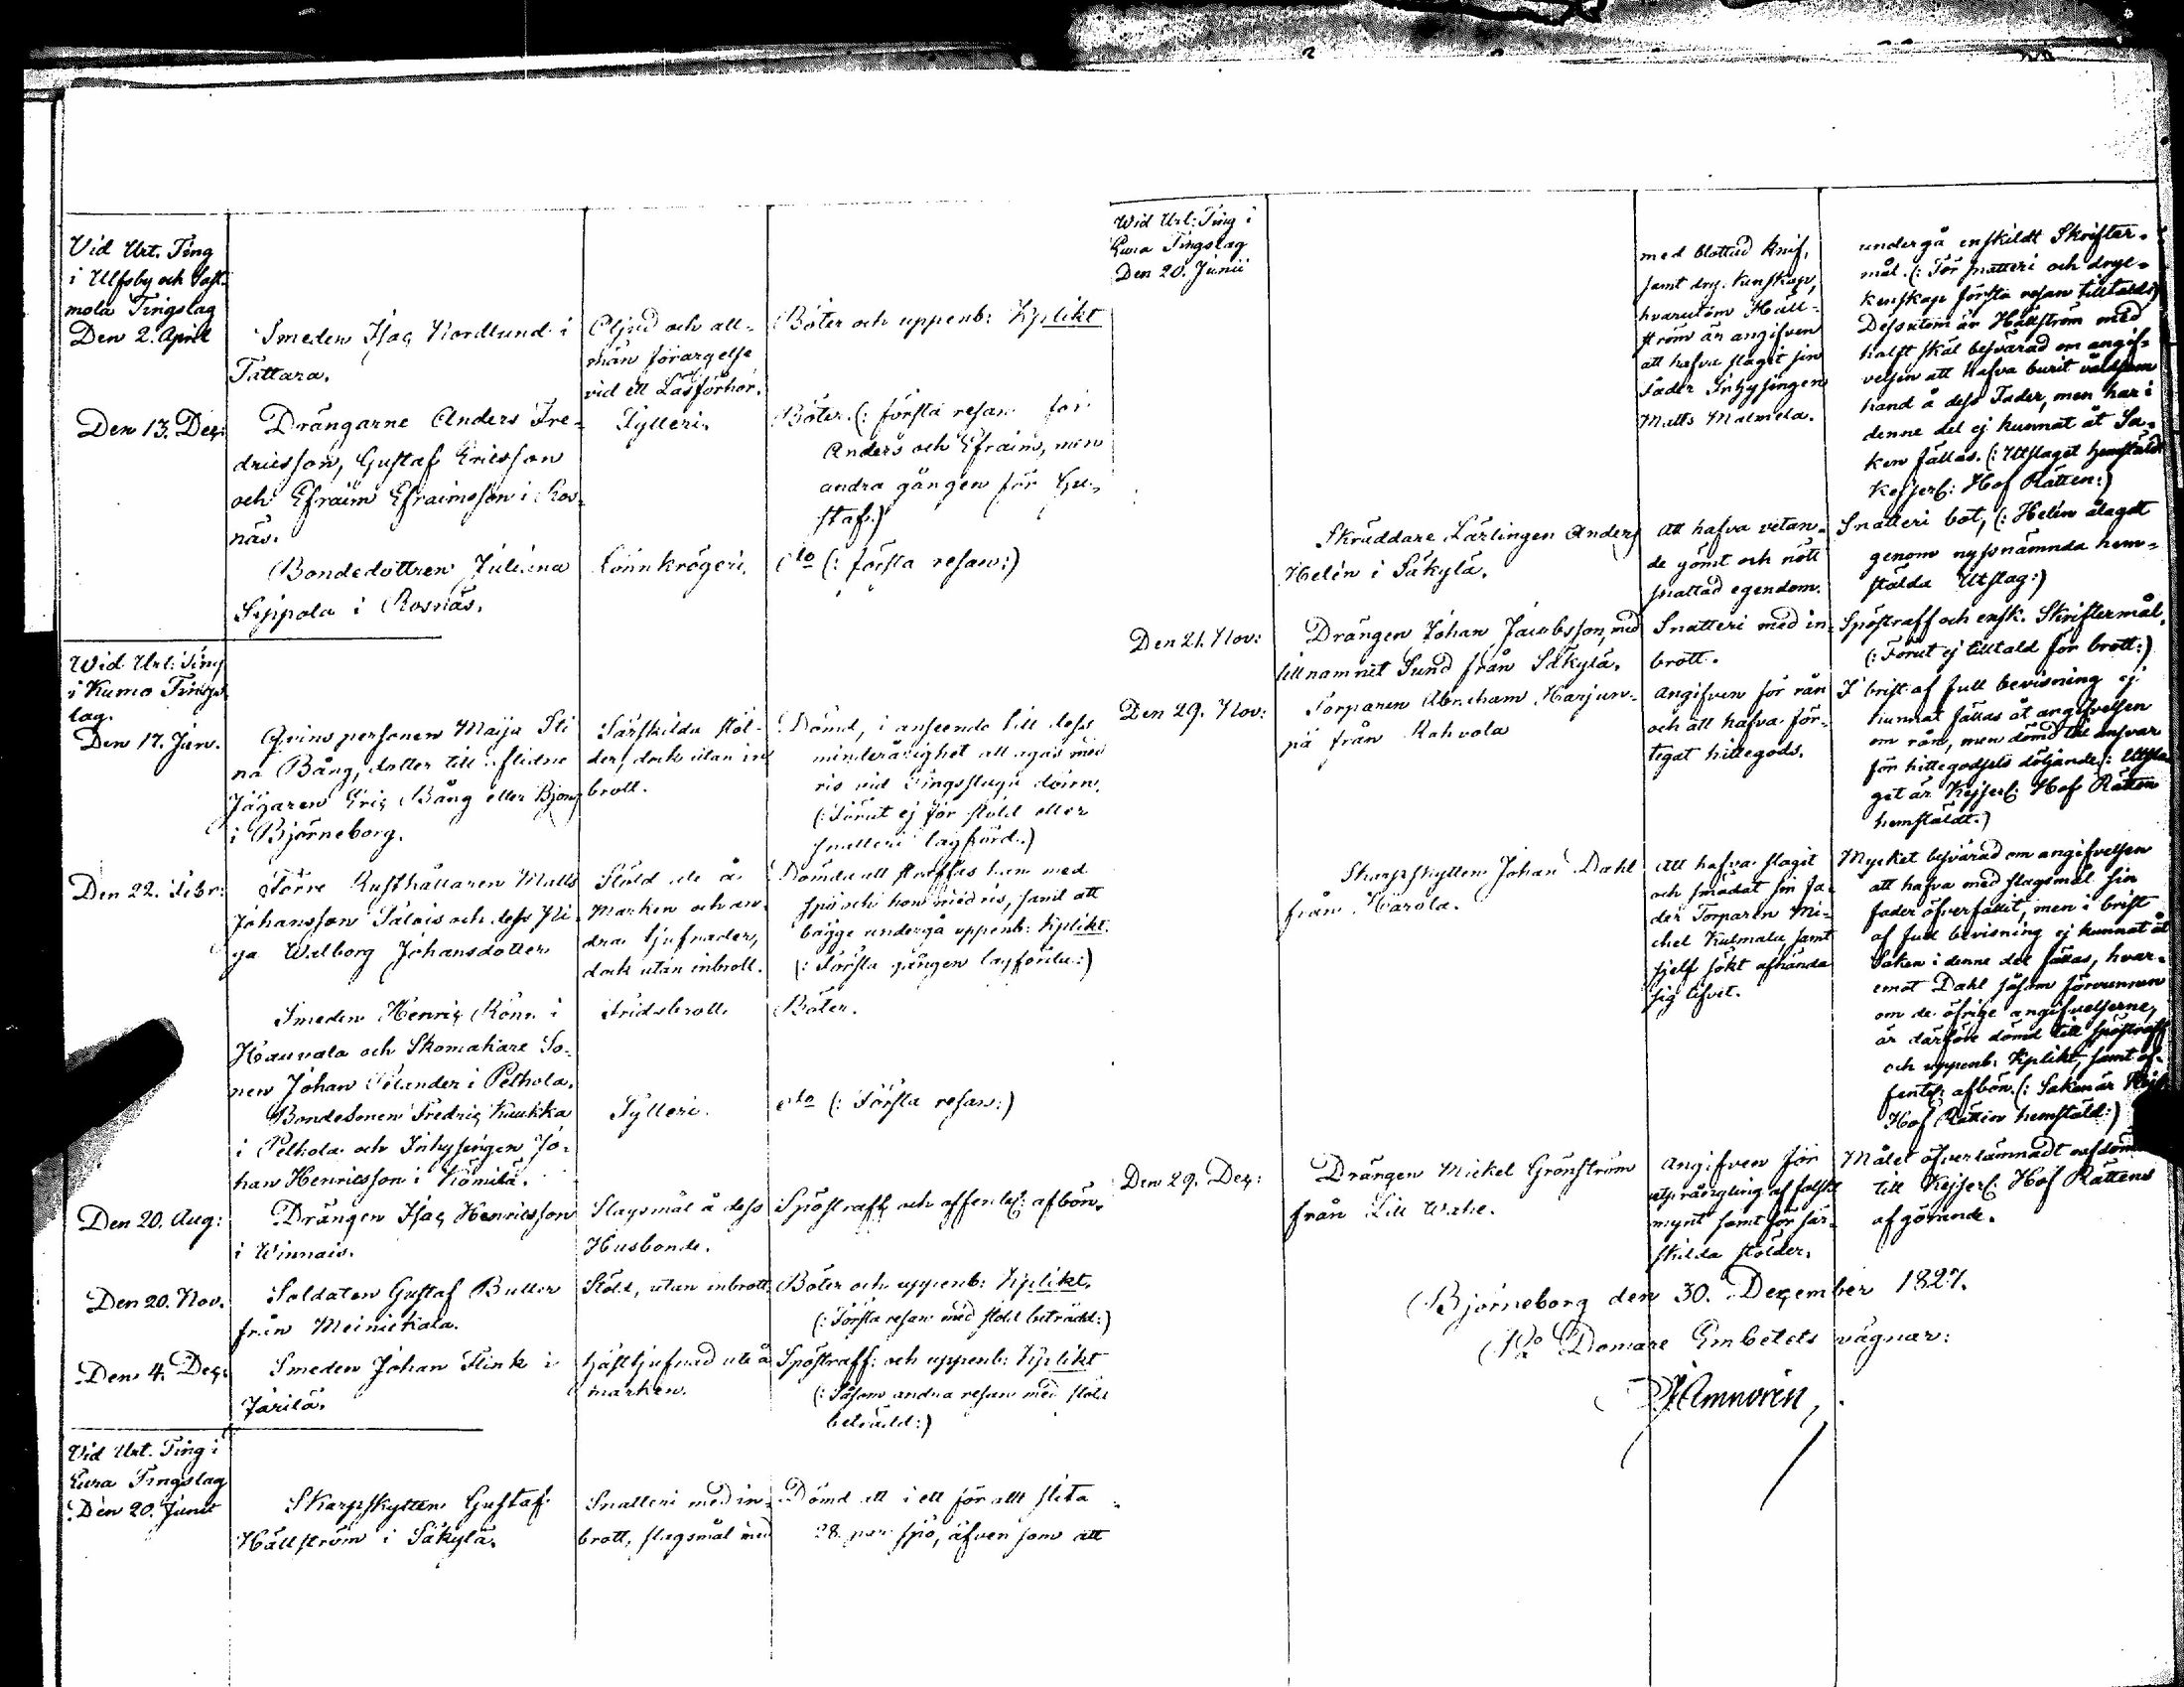 Vid Urt. Ting
i Ulfsby och Sast-
mola Tingslag
Den 2. April
Smeden Isaç Nordlund i
Tattara.
Oljud och all-
män förargelse
vid ett Läsförhör.
Böter och uppenb: Kplikt
Den 13. Deç:
Drängarne Anders Fre-
dricsson, Gustaf Ericsson
och Efraim Efraimsson i Ros-
näs.
Fylleri.
Böter. (: första resan för
Anders och Efraim, men
andra gången för Gu-
staf.)
Bondedottren Juliana
Seppola i Rosnäs.
Lönnkrögeri.
dto (: första resan:)
Wid Url: Ting
i Kumo Tings-
lag.
Den 17. Jan.
Qvinspersonen Maija Sti
na Bång, dotter till aflidne
Jägaren Eriç Bång eller Bjong
i Björneborg.
Särskilda stöl-
der, dock utan in
brott.
Dömd, i anseende till dess
minderårighet att agas med
ris vid Tingsstugu dörren.
(: Förut ej för stöld eller
snatteri lagförd.)
Den 22. Febr:
Förre Rusthållaren Matts
Johansson Salois och dess Pi-
ga Walborg Johansdotter
Stöld ute å
Marken och an-
dra tjufnader,
dock utan inbrott.
Dömde att straffas han med
spö och hon med ris, samt att
bägge undergå uppenb: Kplikt.
(: Första gången lagförde:)
Smeden Henriç Rönn i
Hauvola och Skomakare So-
nen Johan Pelander i Pethola.
Fridsbrott.
Böter.
Bondesonen Fredriç Kuukka
i Pethola och Inhysingen Jo-
han Henricsson i Kömilä.
Fylleri.
dto (: Första resan:)
Den 20. Aug:
Drängen Isaç Henricsson
i Winnais.
Slagsmål å dess
Husbonde.
Spöstraff och offentel: afbön.
Den 20. Nov.
Soldaten Gustaf Butler
från Meinikkala.
Stöld, utan inbrott
Böter och uppenb: Kplikt.
(: Första resan med stöld beträdd:)
Den 4. Deç:
Smeden Johan Flink i
Järilä.
Hästtjufnad ute å
marken.
Spöstraff: och uppenb: Kplikt
(: Såsom andra resan med stöld
beträdd:)
Vid Urt. Ting i
Eura Tingslag
Den 20. Junii
Skarpskytten Gustaf
Hällström i Säkylä.
Snatteri med in-
brott, slagsmål med
Dömd att i ett för allt slita
28 par spö, äfven som att
Wid Url: Ting i
Eura Tingslag
Den 20. Junii
med blottad knif,
samt dryckenskap,
hvarutom Häll-
ström är angifven
att hafva slagit sin
Fader Inhysingen
Matts Malmela.
undergå enskildt Skrifter-
mål. (: För snatteri och dryc-
kenskap första resan tilltald:)
Dessutom är Hällström med
halft skäl besvärad om angif-
velsen att hafva burit våldsam
hand å dess Fader, men har i
denne del ej kunnat åt Sa-
ken fällas. (: Utslaget hemstäldt
Kejserl: Hof Rätten:)
Skräddare Lärlingen Anders
Helén i Säkylä.
Att hafva vetan-
de gömt och nött
snattad egendom.
Snatteri bot, (: Helén ålagdt
genom nyssnämnda hem-
stälda Utslag:)
Den 21. Nov:
Drängen Johan Jacobsson, med
tillnamnet Sund från Säkylä.
Snatteri med in-
brott.
Spöstraff och ensk. Skriftermål.
(: Förut ej tilltald för brott:)
Den 29. Nov:
Torparen Abraham Harjun-
pä från Kahvola
Angifven för rån
och att hafva för-
tegat hittegods.
I brist af full bevisning ej
kunnat fällas åt angifvelsen
om rån, men dömd till ansvar
för hittegodsets döljande (: Utsla-
get är Kejserl: Hof Rätten
hemstäldt.)
Skarpskytten Johan Dahl
från Harola.
Att hafva slagit
och smädat sin Fa-
der Torparen Mi-
chel Kulmala samt
sjelf sökt afhända
sig lifvet.
Mycket besvärad om angifvelsen
att hafva med slagsmål sin
fader öfverfallit, men i brist
af full bevisning ej kunnat åt
Saken i denne del fällas, hvar-
emot Dahl såsom förvunnen
om de öfrige angifvelserne,
är därföre dömd till spöstraff
och uppenb: Kplikt, samt of-
fentel: afbön. (: Saken är Kejs
Hof Rätten hemstäld:)
Den 29. Deç:
Drängen Mickel Grönström
från Lill Wahe.
Angifven för
utprångling af falskt
mynt samt för sär-
skilda stölder.
Målet öfverlämnadt
till Kejserl: Hof Rättens
afgörande.
Björneborg den 30. Deçember 1827.
På Domare Embetets vägnar: